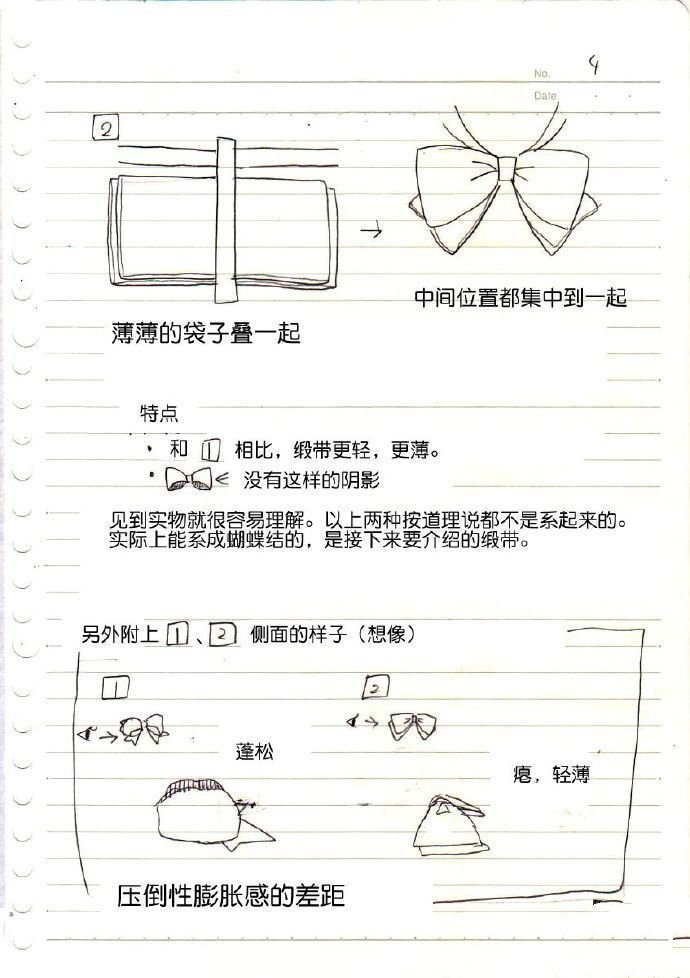 No. 4
Date
2
中间位置都集中到一起
薄薄的袋子叠一起
特点
· 和 1 相比，缎带更轻，更薄。
· 没有这样的阴影
见到实物就很容易理解。以上两种按道理说都不是系起来的。
实际上能系成蝴蝶结的，是接下来要介绍的缎带。
另外附上 1、2 侧面的样子（想像）
1
2
蓬松
瘪，轻薄
压倒性膨胀感的差距